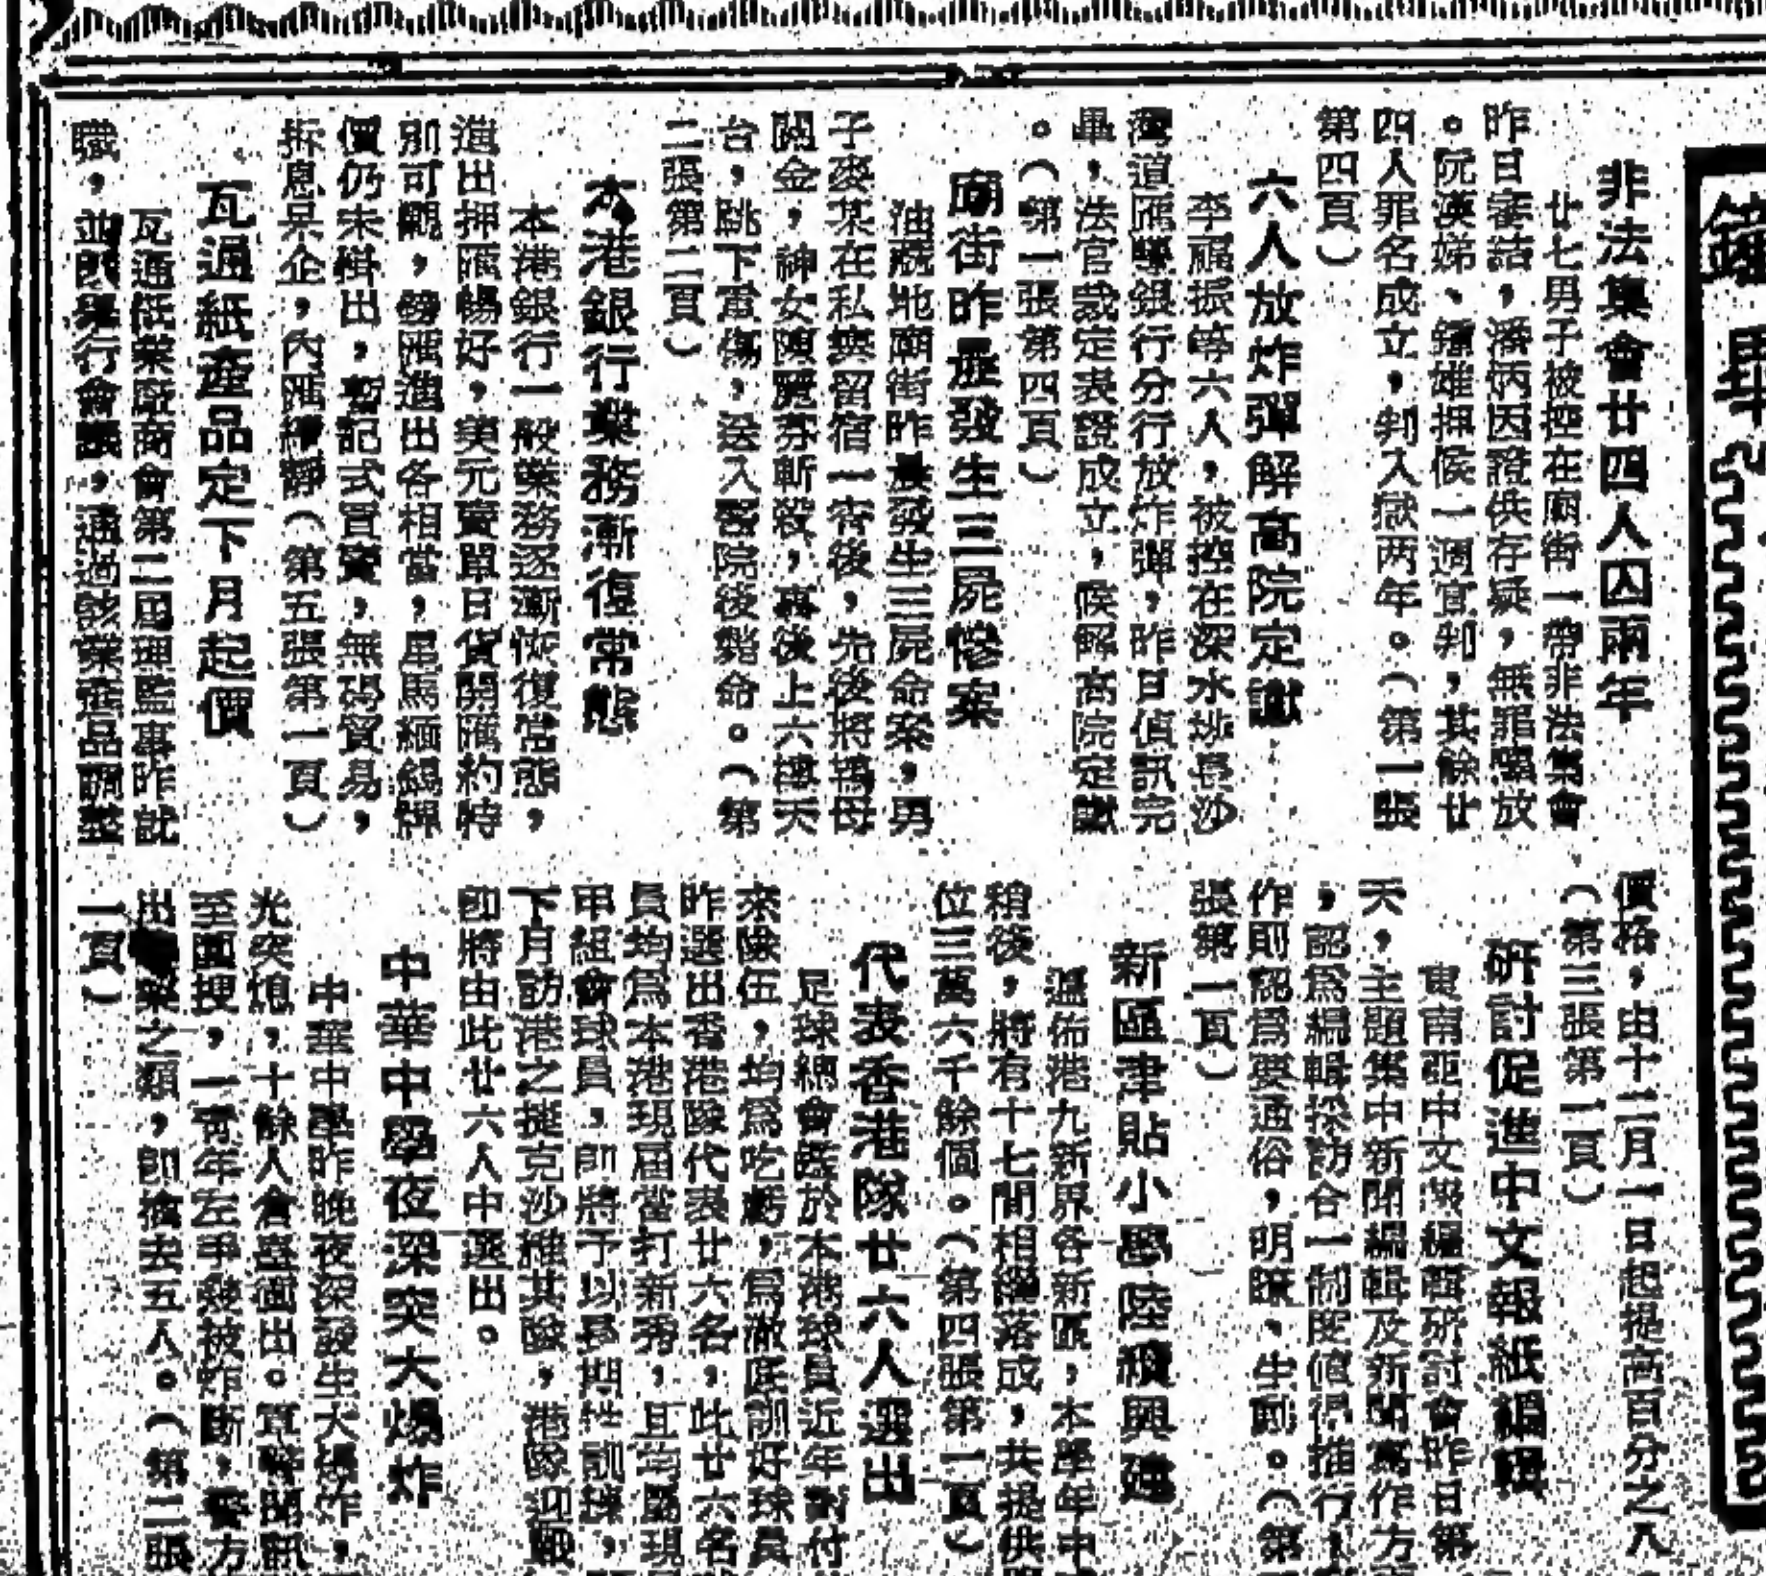 非法集會廿四人囚兩年
廿七男子被控在廟街一帶非法集會
昨日審詰，潘炳因證供存疑，無罪釋放
。阮漢娣、鍾雄押候一週宣判，其餘廿
四人罪名成立，判入獄两年。（第一張
第四頁）
六人放炸彈解高院定讞
李福振等六人，被控在深水埗長沙
灣道滙豐銀行分行放炸彈，昨日偵訊完
畢，法官裁定表證成立，候解高院定讞
。（第一張第四頁）
廟街昨晨發生三屍慘案
油蔴地廟街昨晨發生三屍命案，男
子麥某在私寓留宿一宵後，先後將鴇母
關金，神女陳麗芬斬殺，事後上六樓天
台，跳下重傷，送入醫院後斃命。（第
二張第二頁）
本港銀行業務漸復常態
本港銀行一般業務逐漸恢復常態，
進出押匯暢好，美元賣單日貨開匯約特
別可觀，僑匯進出各相當，星馬緬錫牌
價仍未掛出，暫記式買賣，無碼貿易，
拆息呆企，內匯續靜（第五張第一頁）
瓦通紙產品定下月起價
瓦通紙業廠商會第二屆理監事昨就
職，並即舉行會議，通過該業產品調整
價格，由十二月一日起提高百分之八
（第三張第一頁）
研討促進中文報紙編輯
東南亞中文報編輯研討會昨日第
天，主題集中新聞編輯及新聞寫作方
，認爲編輯採訪合一制度值得推行！
作則認爲要通俗，明瞭、生動。（第
張第一頁）
新區津貼小學陸續興建
遍佈港九新界各新區，本學年中
稍後，將有十七間相繼落成，共提供
位三萬六千餘個。（第四張第一頁）
代表香港隊廿六人選出
足球總會鑒於本港球員近年對付
來險伍，均爲吃虧，爲澈底訓好球員
昨選出香港隊代表廿六名，此廿六名
員均爲本港現屆當打新秀，且均屬現
甲組會球員，即將予以長期性訓練，
下月訪港之挺克沙維其隊，港隊迎戰
即將由此廿六人中選出。
中華中學夜深突大爆炸
中華中學昨晚夜深發生大爆炸，
光突熄，十餘人倉皇衝出。軍警聞訊
至圍搜，一青年左手幾被炸斷，警方
出 藥之類，卽擒去五人。（第二張
一頁）